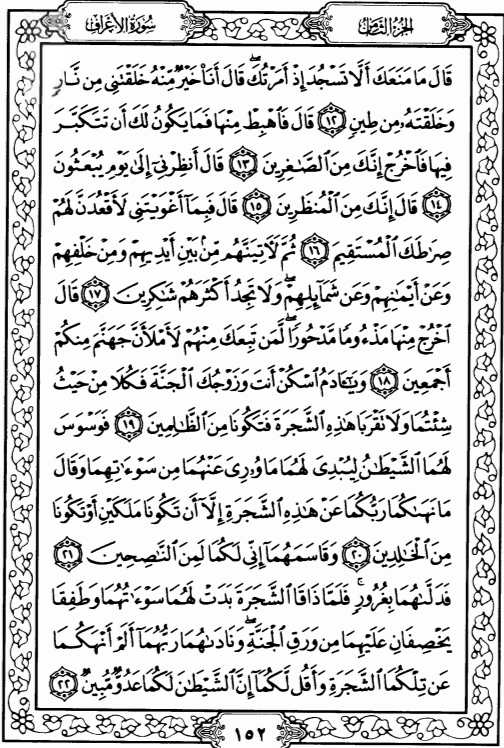 سُورَةُ الأَعْرَافِ الجُزْءُ الثَّامِنُ
قَالَ مَا مَنَعَكَ أَلَّا تَسْجُدَ إِذْ أَمَرْتُكَ ۖ قَالَ أَنَا۠ خَيْرٌ مِّنْهُ خَلَقْتَنِي مِن نَّارٍ
وَخَلَقْتَهُۥ مِن طِينٍ ١٢ قَالَ فَٱهْبِطْ مِنْهَا فَمَا يَكُونُ لَكَ أَن تَتَكَبَّرَ
فِيهَا فَٱخْرُجْ إِنَّكَ مِنَ ٱلصَّـٰغِرِينَ ١٣ قَالَ أَنظِرْنِىٓ إِلَىٰ يَوْمِ يُبْعَثُونَ
١٤ قَالَ إِنَّكَ مِنَ ٱلْمُنظَرِينَ ١٥ قَالَ فَبِمَآ أَغْوَيْتَنِى لَأَقْعُدَنَّ لَهُمْ
صِرَٰطَكَ ٱلْمُسْتَقِيمَ ١٦ ثُمَّ لَـَٔاتِيَنَّهُم مِّنۢ بَيْنِ أَيْدِيهِمْ وَمِنْ خَلْفِهِمْ
وَعَنْ أَيْمَـٰنِهِمْ وَعَن شَمَآئِلِهِمْ ۖ وَلَا تَجِدُ أَكْثَرَهُمْ شَـٰكِرِينَ ١٧ قَالَ
ٱخْرُجْ مِنْهَا مَذْءُومًا مَّدْحُورًا ۖ لَّمَن تَبِعَكَ مِنْهُمْ لَأَمْلَأَنَّ جَهَنَّمَ مِنكُمْ
أَجْمَعِينَ ١٨ وَيَـٰٓـَٔادَمُ ٱسْكُنْ أَنتَ وَزَوْجُكَ ٱلْجَنَّةَ فَكُلَا مِنْ حَيْثُ
شِئْتُمَا وَلَا تَقْرَبَا هَـٰذِهِ ٱلشَّجَرَةَ فَتَكُونَا مِنَ ٱلظَّـٰلِمِينَ ١٩ فَوَسْوَسَ
لَهُمَا ٱلشَّيْطَـٰنُ لِيُبْدِىَ لَهُمَا مَا وُۥرِىَ عَنْهُمَا مِن سَوْءَٰتِهِمَا وَقَالَ
مَا نَهَىٰكُمَا رَبُّكُمَا عَنْ هَـٰذِهِ ٱلشَّجَرَةِ إِلَّآ أَن تَكُونَا مَلَكَيْنِ أَوْ تَكُونَا
مِنَ ٱلْخَـٰلِدِينَ ٢٠ وَقَاسَمَهُمَآ إِنِّى لَكُمَا لَمِنَ ٱلنَّـٰصِحِينَ ٢١
فَدَلَّىٰهُمَا بِغُرُورٍ ۚ فَلَمَّا ذَاقَا ٱلشَّجَرَةَ بَدَتْ لَهُمَا سَوْءَٰتُهُمَا وَطَفِقَا
يَخْصِفَانِ عَلَيْهِمَا مِن وَرَقِ ٱلْجَنَّةِ ۖ وَنَادَىٰهُمَا رَبُّهُمَآ أَلَمْ أَنْهَكُمَا
عَن تِلْكُمَا ٱلشَّجَرَةِ وَأَقُل لَّكُمَآ إِنَّ ٱلشَّيْطَـٰنَ لَكُمَا عَدُوٌّ مُّبِينٌ ٢٢
١٥٢